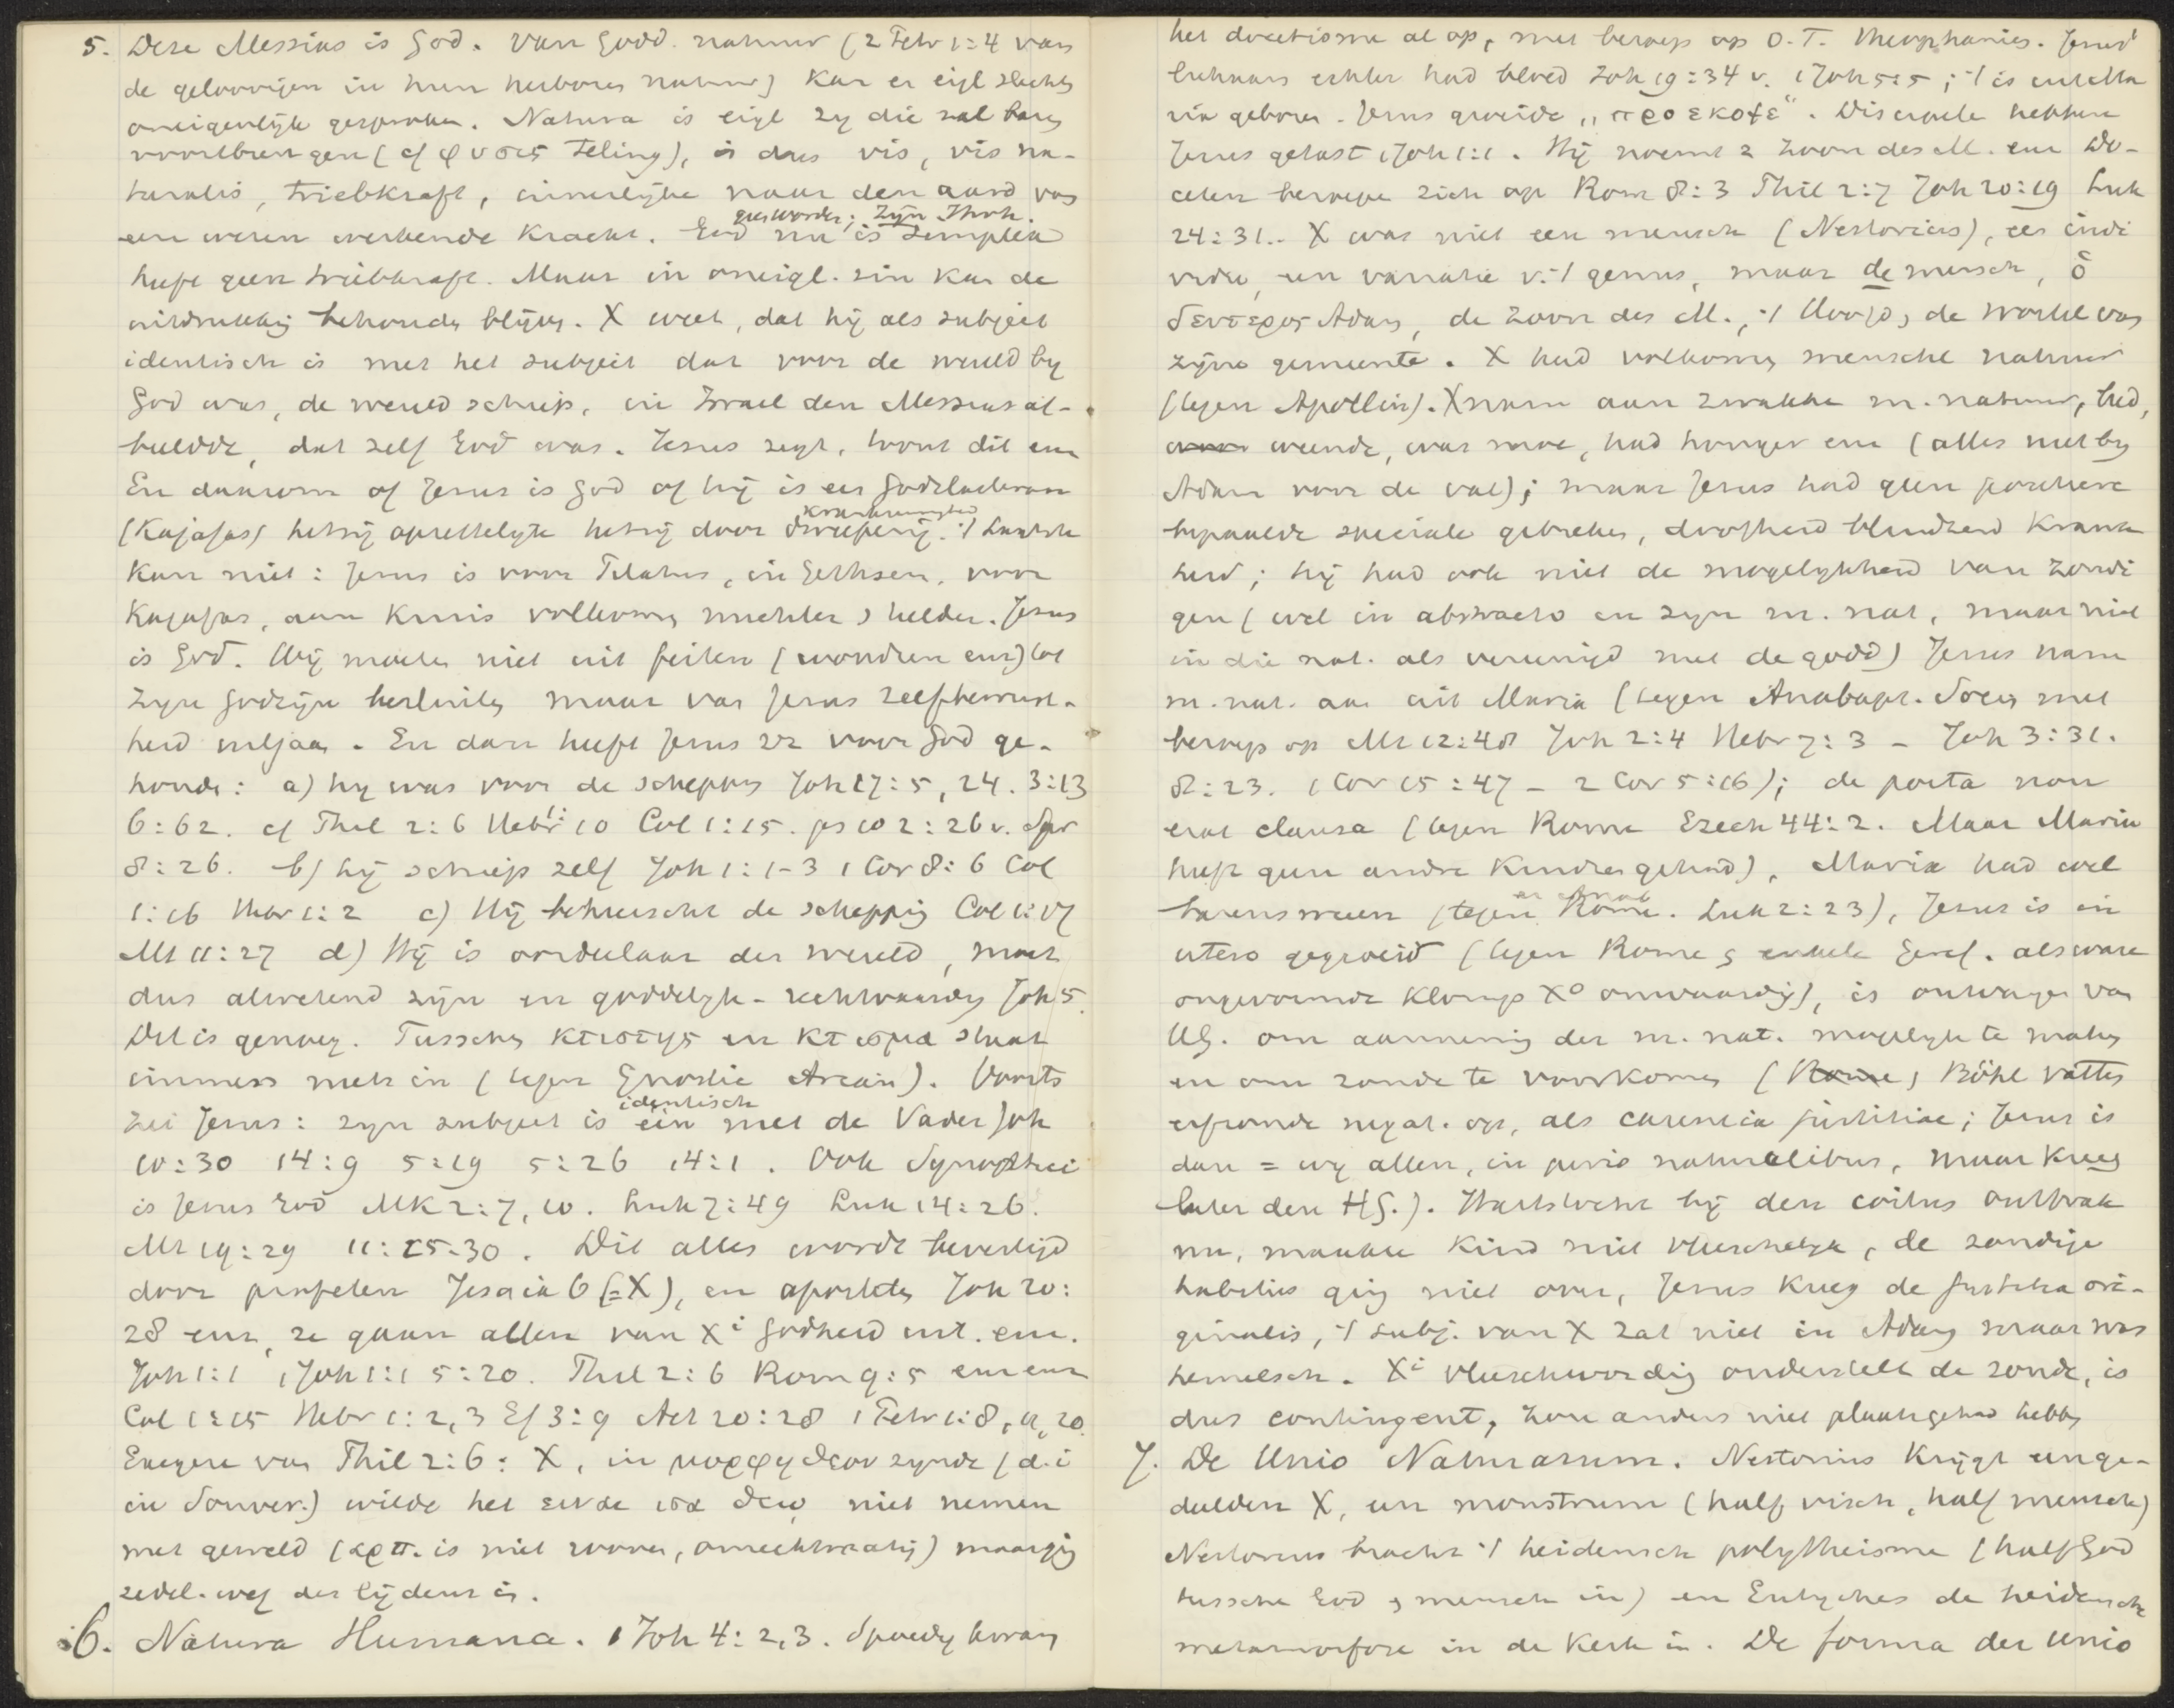 5. Deze Messias is God. Van Godd. natuur (2 Petr 1:4 van
de geloovigen in hun herboren natuur) kan er eigl slechts
oneigenlijk gesproken. Natura is eigl zy die zal baren
voortbrengen (cf φυσις teling), is dus vis, vis na-
turalis, triebkraft, innerlijke naar den aard van
een wezen werkende kracht. God nu is simplex
geeft geen triebkraft. Maar in oneigl. zin kan de
uitdrukking behouden blijven. X weet, dat hij als subject
identisch is met het subject dat voor de wereld by
God was, de wereld schiep, in Israel den Messias af-
beeldde, dat zelf God was. Jesus zegt,
En daarom of Jesus is God of hij is een Godslasteraar
(Kajafas) hetzij opzettelijk hetzij door dweeperij. krankzinnigheid 't laatste
kan niet: Jesus is voor Pilatus, in Gethsem. voor
Kajafas, aan kruis volkomen nuchter & helder. Jesus
is God. Wij moeten niet uit feiten (wondren enz) tot
zyn Godzijn besluiten maar van Jesus zelfbewust-
heid uitgaan. En dan heeft Jesus zz voor God ge-
houden: a) hy was voor de schepping Joh 17:5, 24. 3:13
6:62. cf Phil 2:6 Hebr 1:10 Col 1:15. ps 102:26v. Spr
8:26. b) hij schiep zelf Joh 1:1-3 1 Cor 8:6 Col
1:16 Hebr 1:2 c) Hij beheerscht de schepping Col 1:17
Mt 11:27 d) Hij is oordeelaar der wereld, moet
dus alwetend zijn en goddelyk-rechtvaardig Joh 5.
Dit is genoeg. Tusschen κτιστης en κτισμα staat
immers niets in (tegen Gnostic Arean). Voorts
zei Jesus: zyn subject is één identisch met de Vader Joh
10:30 14:9 5:19 5:26 14:1. Ook Synoptici
is Jesus God Mk 2:7, 10. Luk 7:49 Luk 14:26.
Mt 19:29 11:25-30. Dit alles wordt bevestigd
door profeten Jesaia 6 (=X), en apostelen Joh 20:
28 enz, ze gaan allen van Xi Godheid uit. enz.
Joh 1:1 1 Joh 1:1 5:20. Phil 2:6 Rom 9:5 enz enz
Col 1:15 Hebr 1:2,3 Ef 3:9 Act 20:28 1 Petr 1:8, 11, 20.
Exegese van Phil 2:6: X, in μορφη θεου zijnde (d.i
in Souver.) wilde het ειναι ισα θεω niet nemen
met geweld (αρπ. is niet rooven, onrechtmatig) maar ging
zedel. weg des lijdens in.
6. Natura Humana. 1 Joh 4:2,3. Spoedig kwam
het docetisme al op, met beroep op O.T. theophanies. Jesus'
lichaam echter had bloed Joh 19:34 v. 1 Joh 5:5; 't is uit Ma
ria geboren. Jesus groeide „προεκοπτε". Discipelen hebben
Jesus getast 1 Joh 1:1. Hij noemt z Zoon des M. enz Do-
ceten beroepen zich op Rom 8:3 Phil 2:7 Joh 20:19 Luk
24:31.. X was niet een mensch (Nestorius), een indi
vidu, een variatie v. 't genus, maar de mensch, ὁ
δευτερος Adam, de Zoon des M., 't Hoofd, de wortel van
zijne gemeente. X had volkomen menschl natuur
(tegen Apollin). X nam aan zwakke m. natuur, leed,
weende, was moe, had honger enz (alles niet by
Adam voor de val); maar Jesus had geen positieve
bepaalde speciale gebreken, doofheid blindheid krank
heid; hij had ook niet de mogelykheid van zondi
gen (wel in abstracto in zyn m. nat, maar niet
in die nat. als vereenigd met de godd) Jesus nam
m. nat. aan uit Maria (tegen Anabapt. Socin met
beroep op Mt 12:48 Joh 2:4 Hebr 7:3 – Joh 3:31.
8:23. 1 Cor 15:47 – 2 Cor 5:16); de porta non
erat clausa (tegen Rome Ezech 44:2. Maar Maria
heeft geen andre kindren gehad), Maria had wel
barensweeen (tegen Rome. Luk 2:23), Jesus is in
utero gegroeid (tegen Rome & enkele Geref. alsware
ongevormde klomp Xo onwaardig), is ontvangen van
HG. om aanneming der m. nat. mogelyk te maken
en om zonde te voorkomen (Rome, Böhl vatten
erfzonde negat. op, als carentia justitiae; Jesus is
dan = wij allen, in puris naturalibus, maar kreeg
later den HG.). Hartstocht bij den coitus ontbrak
nu, maakte kind niet vleeschelyk, de zondige
habitus ging niet over, Jesus kreeg de justitia ori-
ginalis, 't subj. van X zat niet in Adam maar was
hemelsch. Xi vleeschwording onderstelt de zonde, is
dus contingent, zou anders niet plaatsgehad hebben
7. De Unio Naturarum. Nestorius krijgt een ge-
deelden X, een monstrum (half visch, half mensch)
Nestorius bracht 't heidensch polytheisme (half God
tusschen God & mensch in) en Eutyches de heidensche
metamorfose in de kerk in. De forma der unio